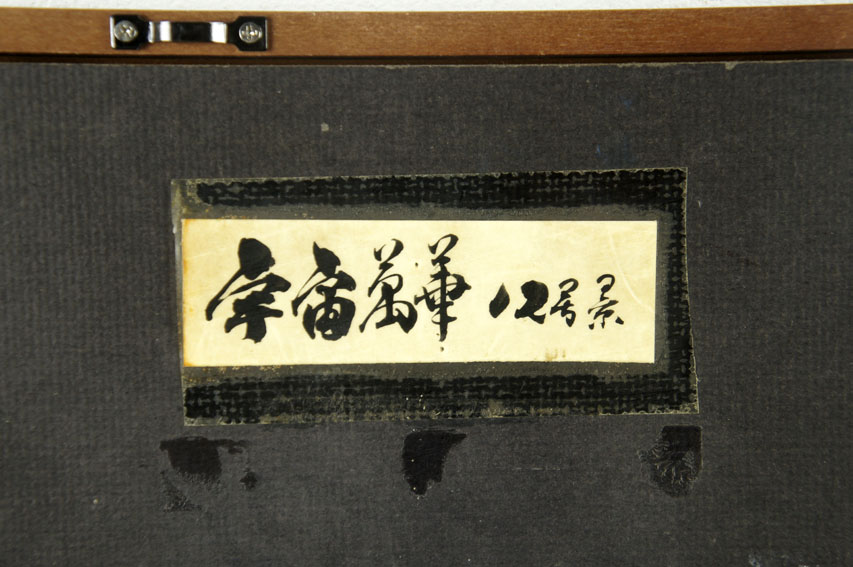 宇宙萬華 12号景